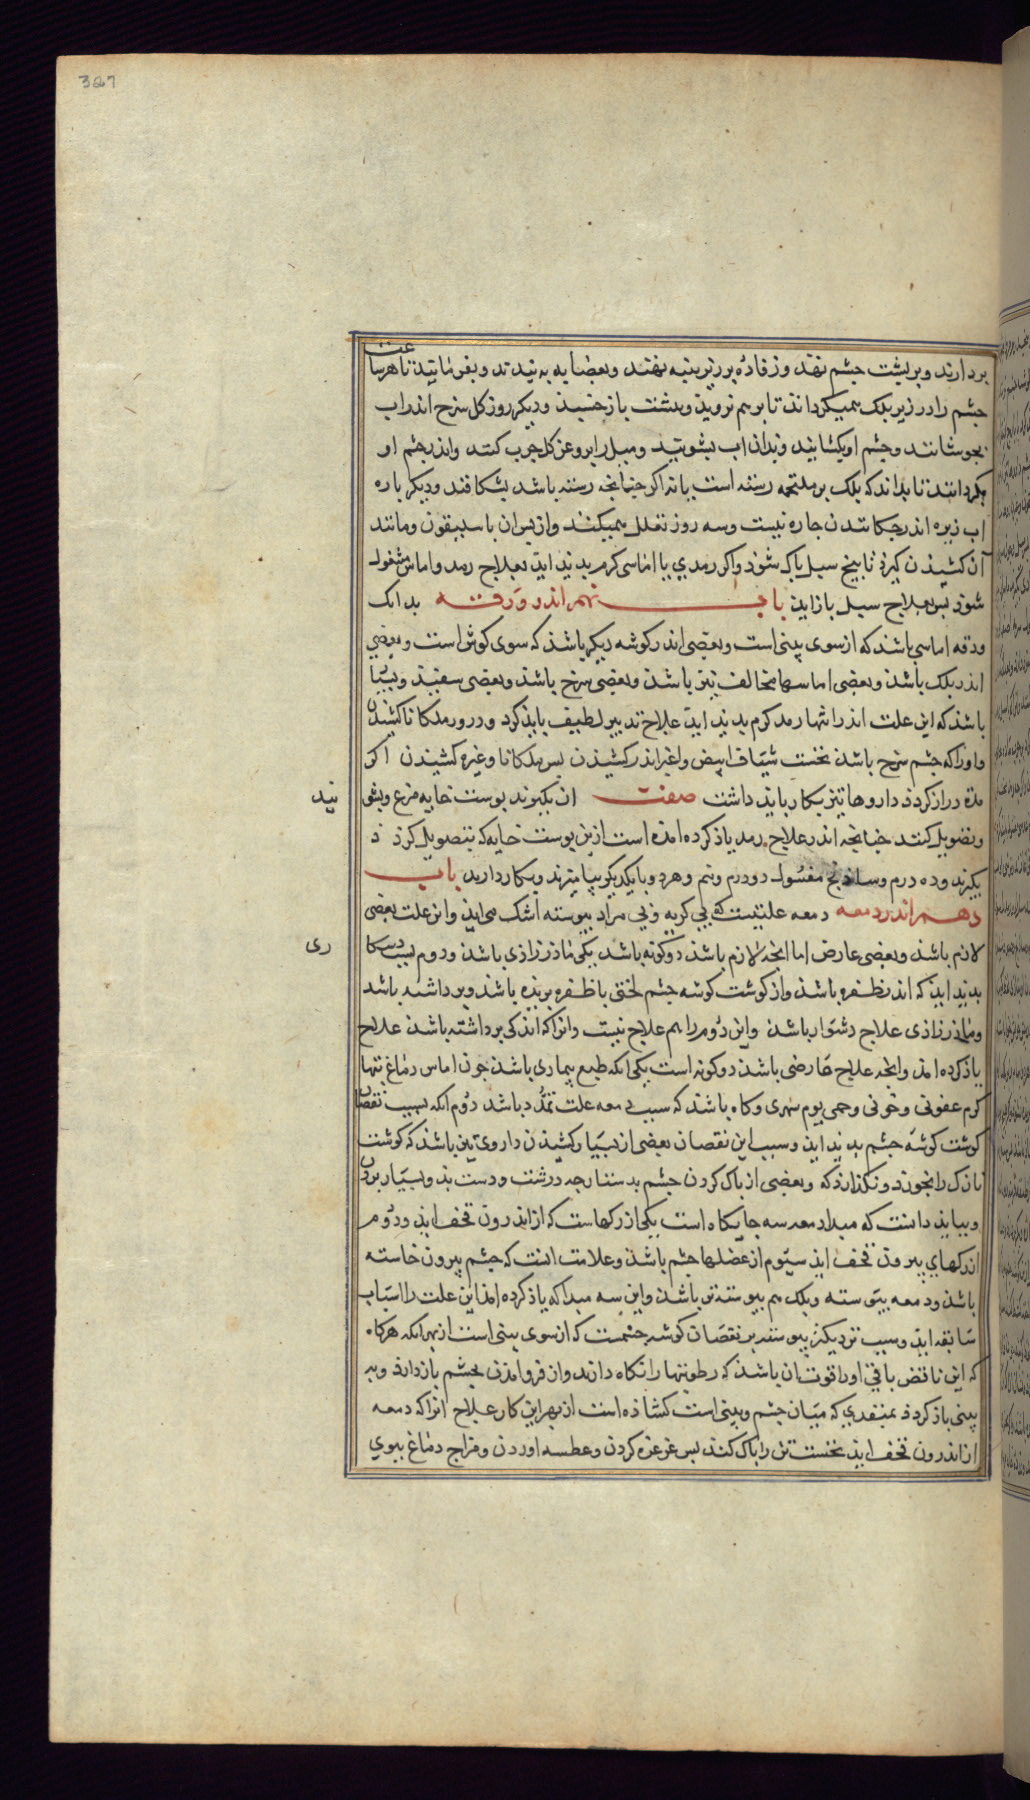 367
بردارند و بر پشت چشم نهند و زفاده بر زبر پنبه نهند و بعصابه به بندند و بفرمایند تا هر ساعت
چشم را در زیر پلک همیکرداند تا بر هم نروید و بشب باز خسبد و دیکر روز کل سرخ اندر اب
بجوشانند و چشم او بکشایند و بدان اب بشویند و میل را بروغن کل چرب کنند و اندر چشم او
بکردانند تا بداند که پلک بر ملتحمه رسته است یا نه اکر چنانچه رسته باشد بشکافند و دیکر باره
اب زیره اندر چکانیدن چاره نیست و سه روز همیکند و از پس ان باسلیقون و مانند
آن کشیدن کیرد تا بیخ سبل پاک شود و اکر رمدی یا اماسی کرم پدید اید بعلاج رمد و اماس مشغول
شود پس بعلاج سبل باز اید باب نهم اندر ودقه بدانک
ودقه اماسی باشد که از سوی بینی است و بعضی اندر کوشه دیکر باشد که سوی کوش است و بعضی
اندر پلک باشد و بعضی اماسها مخالف نیز باشد و بعضی سرخ باشد و بعضی سفید و بسیا
باشد که این علت اندر انتهاء رمد کرم پدید اید علاج تدبیر لطیف باید کرد و ذرور ملکایا کشیدن
و انرا که چشم سرخ باشد نخست شیاف ابیض و اغبر اندر کشیدن پس ملکایا و غیره کشیدن اکر
مدة دراز کردد داروها تیز بکار باید داشت صفت ان بکیرند پوست خایه مرغ و بشو
یند
و تصویل کنند چنانچه اندر علاج رمد یاد کرده امده است ازین پوست خایه که تصویل کرد د
بکیرند و ده درم و ساذنج مغسول دو درم و نیم و هر دو با یکدیکر بیامیزند و بکار دارند باب
دهم اندر دمعه دمعه علتیست که بی کریه و بی مراد پیوسته اشک می اید و این علت بعضی
لازم باشد و بعضی عارض اما انچه لازم باشد دو کونه باشد یکی ماذرزادی باشد و دوم بسبب دستکا
ری
پدید اید که اندر ظفره باشد و از کوشت کوشه چشم لختی با ظفره بریده باشد و برداشته باشد
و ماذرزادی علاج دشوار باشد و این دوم را هم علاج نیست و انرا که اندکی برداشته باشد علاج
یاد کرده امد و انچه علاج عارضی باشد دو کونه است یکی انکه طبع بیماری باشد چون اماس دماغ تبها
کرم عفونی و خونی و حمی یوم سهری و کاه باشد که سبب دمعه علت تمدد باشد دوم انکه بسبب نقصان
کوشت کوشه چشم پدید اید و سبب این نقصان بعضی از بسیار کشیدن داروی تیز باشد که کوشت
نازک را بخورد و بکدازد که و بعضی از پاک کردن چشم بدستارچه درشت و دست بد و بسیار بودن
و بباید دانست که میلاد دمعه سه جایکاه است یکی از رکهاست که از اندرون قحف اید و دوم
از رکهای بیرون قحف اید سیوم از عضلهاء چشم باشد و علامت انست که چشم بیرون خاسته
باشد و دمعه پیوسته و پلک هم پیوسته تر باشد و این سه مبدا که یاد کرده امد این علت را اسباب
سابقه اند و سبب نزدیکتر پیوسته تر نقصان کوشه چشمست که از سوی بینی است از بهر انکه هرکاه
که این ناقض باقی او را قوت ان باشد که رطوبتها را نکاه دارد و از فرو امدن بچشم باز دارد و به
بینی باز کردد بمنفذی که میان چشم و بینی است کشاده است از بهر این کار علاج انرا که دمعه
از اندرون قحف اید نخست تن را پاک کند پس غرغره کردن و عطسه اوردن و مزاج دماغ ببوی